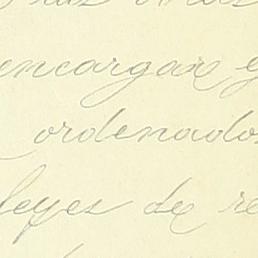 encargar y
ordenados
leyes de re